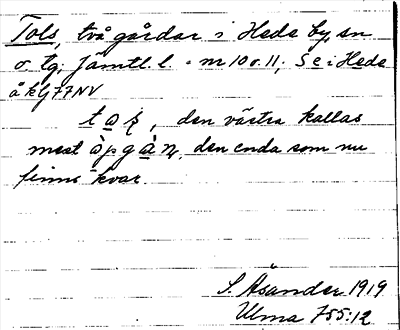 Tols, två gårdar i Hede by, sn
o. tg; Jämtl. l. - nr 10 o. 11; S e i Hede
å kG77NV
tas, den västra kallas
mest den enda som nu
finns kvar.
S. Åsander 1919
Ulma 755:12